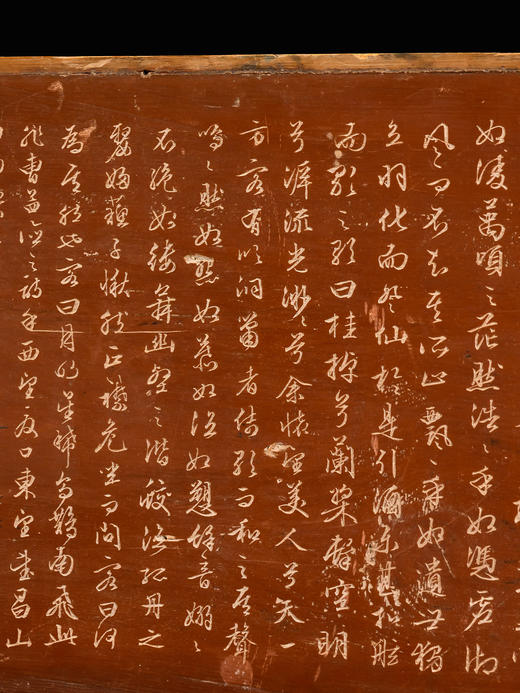 如淩萬頃之茫然浩〻乎如憑虛御
風而不知其所止飄〻乎如遺世獨
立羽化而登仙於是引酒樂甚扣舷
而歌之歌曰桂棹兮蘭槳擊空明
兮泝流光渺〻兮余懷望美人兮天一
方客有吹洞簫者倚歌而和之其聲
嗚〻然如怨如慕如泣如愬餘音嫋〻
不絕如縷舞幽壑之潛蛟泣孤舟之
嫠婦蘇子愀然正襟危坐而問客曰何
為其然也客曰月明星稀烏鵲南飛此
非曹孟德之詩乎西望夏口東望武昌山